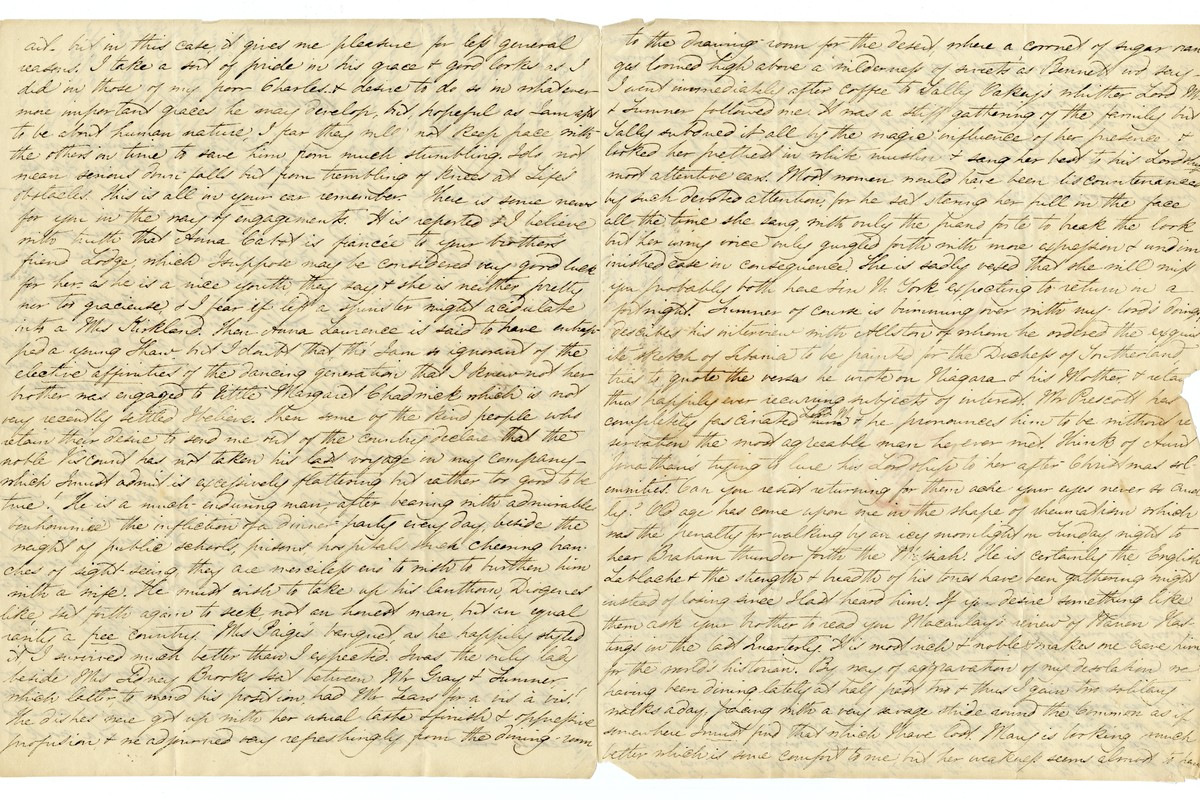 act. but in this case it gives me pleasure for less general
reasons. I take a sort of pride in his grace & good looks as I
did in those of my poor Charles. & desire to do so in whatever
more important graces he may develop, but, hopeful as I am apt
to be about human nature I fear they will not keep pace with
the others in time to save him from much stumbling. I do not
mean serious down falls but from trembling of knees at Life's
obstacles. This is all in your ear remember. There is some news
for you in the way of engagements. It is reported & I believe
with truth that Anna Cabot is fiancée to your brothers
friend Lodge, which I suppose may be considered very good luck
for her. as he is a nice youth they say & she is neither pretty
nor too gracieuse, & I fear if left a spinster might acidulate
into a Mrs Kirkland. Then Anna Lawrence is said to have entrap
ped a young Shaw. but I doubt that tho' I am so ignorant of the
elective affinities of the dancing generation that I knew not her
brother was engaged to little Margaret Chadwick which is not
very recently settled I believe. Then some of the kind people who
retain their desire to send me out of the country declare that the
noble Viscount has not taken his last voyage in my company—
which I must admit is excessively flattering but rather too good to be
true! He is a much-enduring man, after bearing with admirable
bonhommie the infliction of a dinner party every day, beside the
weight of public schools, prisons, hospitals & such cheering bran-
ches of sight-seeing they are merciless eno' to wish to burthen him
with a wife. He must wish to take up his lanthorn, Diogenes
like, & set forth again to seek not an honest man, but an equal
rarity a free country. Mrs Paige's banquet as he happily styled
it, I survived much better than I expected. I was the only lady
beside Mrs Sidney Brooks & sat between Mr Gray & Sumner
which latter to mend his position had Mr Sears for a vis à vis!
The dishes were got up with her usual taste &
profusion & we adjourned very refreshingly from the dining-room
to the drawing room for the desert where a cornet of sugar
loomed high above a wilderness of sweets as Bennett wd. say
I went immediately after coffee to Sally Oakey's whither Lord M
& Sumner followed me. It was a stiff gathering of the family but
Sally subdued it all by the magic influence of her presence &
looked her prettiest in white muslin & sang her best to his Lordship's
most attentive ears. Most women would have been discountenanced
by such devoted attention, for he sat staring her full in the face
all the time she sang with only the piano forte to break the look
but her voice only gurgled forth with more expression & undim
inished ease in consequence. She is sadly vexed that she will miss
you probably both here & in N York expecting to return in a
fortnight. Sumner of course is brimming over with my lord's doings
describes his interview with Allston of whom he ordered the exquis
ite sketch of Titania to be painted for the Duchess of Sutherland,
tries to quote the verses he wrote on Niagara & his Mother & retain
thus happily ever recurring subjects of interest. Mr Prescott has
completely fascinated Lord M & he pronounces him to be without re
servation the most agreeable man he ever met. Think of Aunt
Jonathans trying to lure his Lordship to her after Christmas sol
emnities. Can you resist returning for them ache your eyes never so cruel
ly? Old age has come upon me in the shape of rheumatism which
was the penalty for walking by an icy moonlight on Sunday night to
hear Braham thunder forth the Messiah! He is certainly the English
Lablache & the strength & breadth of his tones have been gathering might
instead of losing since I last heard him. If you desire something like
them ask your brother to read you Macaulay's review of Warren Has
tings in the last Quarterly. It is most rich & noble & makes me crave him
for the world's historian. By way of aggravation of my desolation we
having been dining lately at half past two & thus I gain two solitary
walks a day, pacing with a very savage stride around the Common as if
somewhere I must find that which I have lost. Mary is looking much
better which is some comfort to me but her weakness seems almost to have